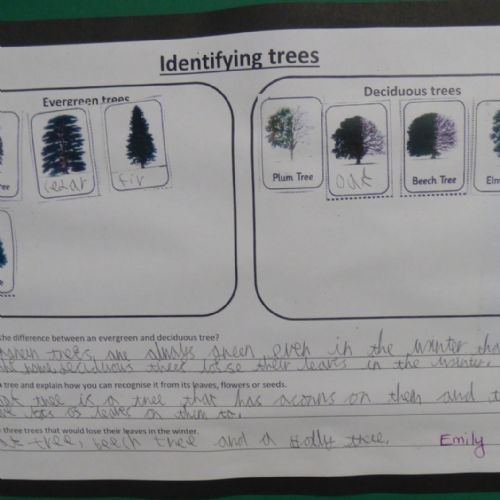 Identifying trees
Evergreen trees
Deciduous trees
cedar
fir
Plum Tree
oak
Beech Tree
Elm
the difference between an evergreen and deciduous tree?
trees are always green even in the winter
deciduous trees lose their leaves in the winter.
tree and explain how you can recognise it from its leaves, flowers or seeds.
tree is a tree that has acorns on them and
of leaves on them to.
three trees that would lose their leaves in the winter.
tree, beech tree and a Holly tree.
Emily